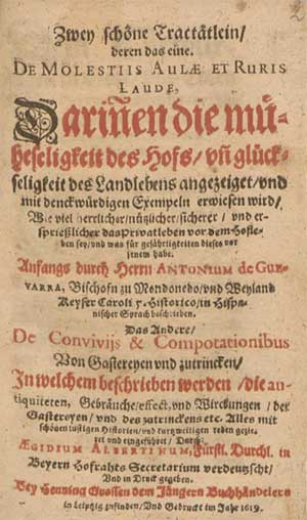 Zwey schöne Tractätlein/
deren das eine.
DE MOLESTIIS AULÆ ET RURIS
LAUDE,
Dariñen die mü-
heseligkeit des Hofs/ vñ glück-
seligkeit des Landlebens angezeiget/vnd
mit denckwürdigen Exempeln erwiesen wird/
Wie viel herrlicher/nützlicher/sicherer / vnd er-
sprießlicher das Privatleben vor dem Hofle-
ben sey/vnd was für gefährligkeiten dieses vor
jenem habe.
Anfangs durch Herrn ANTONIUM de GUE-
VARRA, Bischofn zu Mondonedo/vnd Weyland
Keyser Caroli 5. Historico/in Hispa-
nischer Sprach beschrieben.
Das Andere/
De Convivijs & Compotationibus
Von Gastereyen vnd zutrincken/
In welchem beschrieben werden / die an-
tiquiteten, Gebräuche/effect, vnd Wirckungen / der
Gastereyen/ vnd des zutrinckens etc. Alles mit
schönen lustigen Historien/vnd kurtzweiligen reden gezie-
ret vnd eingeführet/ Durch
ÆGIDIUM ALBERTINUM, Fürstl. Durchl. in
Beyern Hofrahts Secretarium verdeutzscht/
Vnd in Druck gegeben.
Bey Henning Grossen dem Jüngern Buchhändelern
in Leipzig zufinden/ Vnd Gedruckt im Jahr 1619.